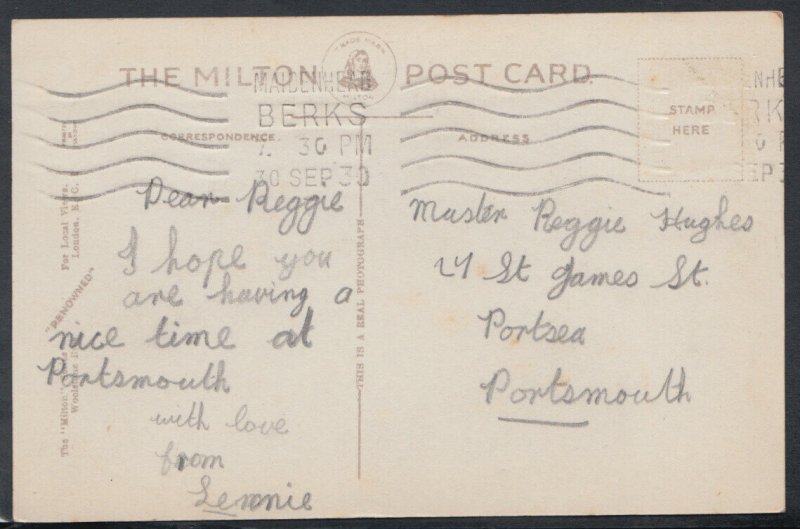 THE MILTON POST CARD.
TRADE MARK
MILTON
MAIDENHEAD
BERKS
30 PM
30 SEP 30
CORRESPONDENCE.
ADDRESS
STAMP
HERE
Dear Reggie
I hope you
are having a
nice time at
Portsmouth
with love
from
Lennie
Master Reggie Hughes
St James St.
Portsea
Portsmouth
THIS IS A REAL PHOTOGRAPH
The "Milton"
"RENOWNED"
For Local Views.
London, E.C.